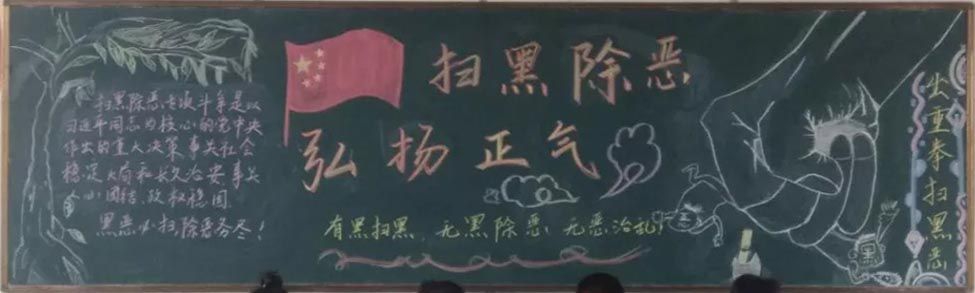 扫黑除恶专项斗争是以
习近平同志为核心的党中央
作出的重大决策事关社会
稳定大局和长久治安,事关
人心团结,政权稳固.
黑恶必扫,除恶务尽!
扫黑除恶
弘扬正气
有黑扫黑 无黑除恶 无恶治乱
出重拳扫黑恶